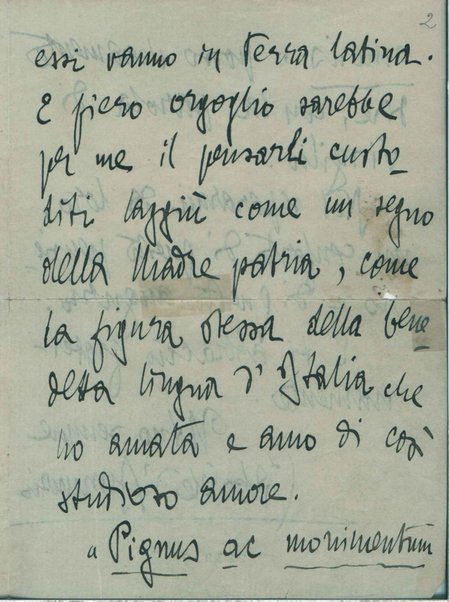 2
essi vanno in terra latina.
E fiero orgoglio sarebbe
per me il pensarli custo-
diti laggiù come un segno
della Madre patria, come
la figura stessa della bene
detta lingua d'Italia che
ho amata e amo di così
studioso amore.
« Pignus ac monimentum